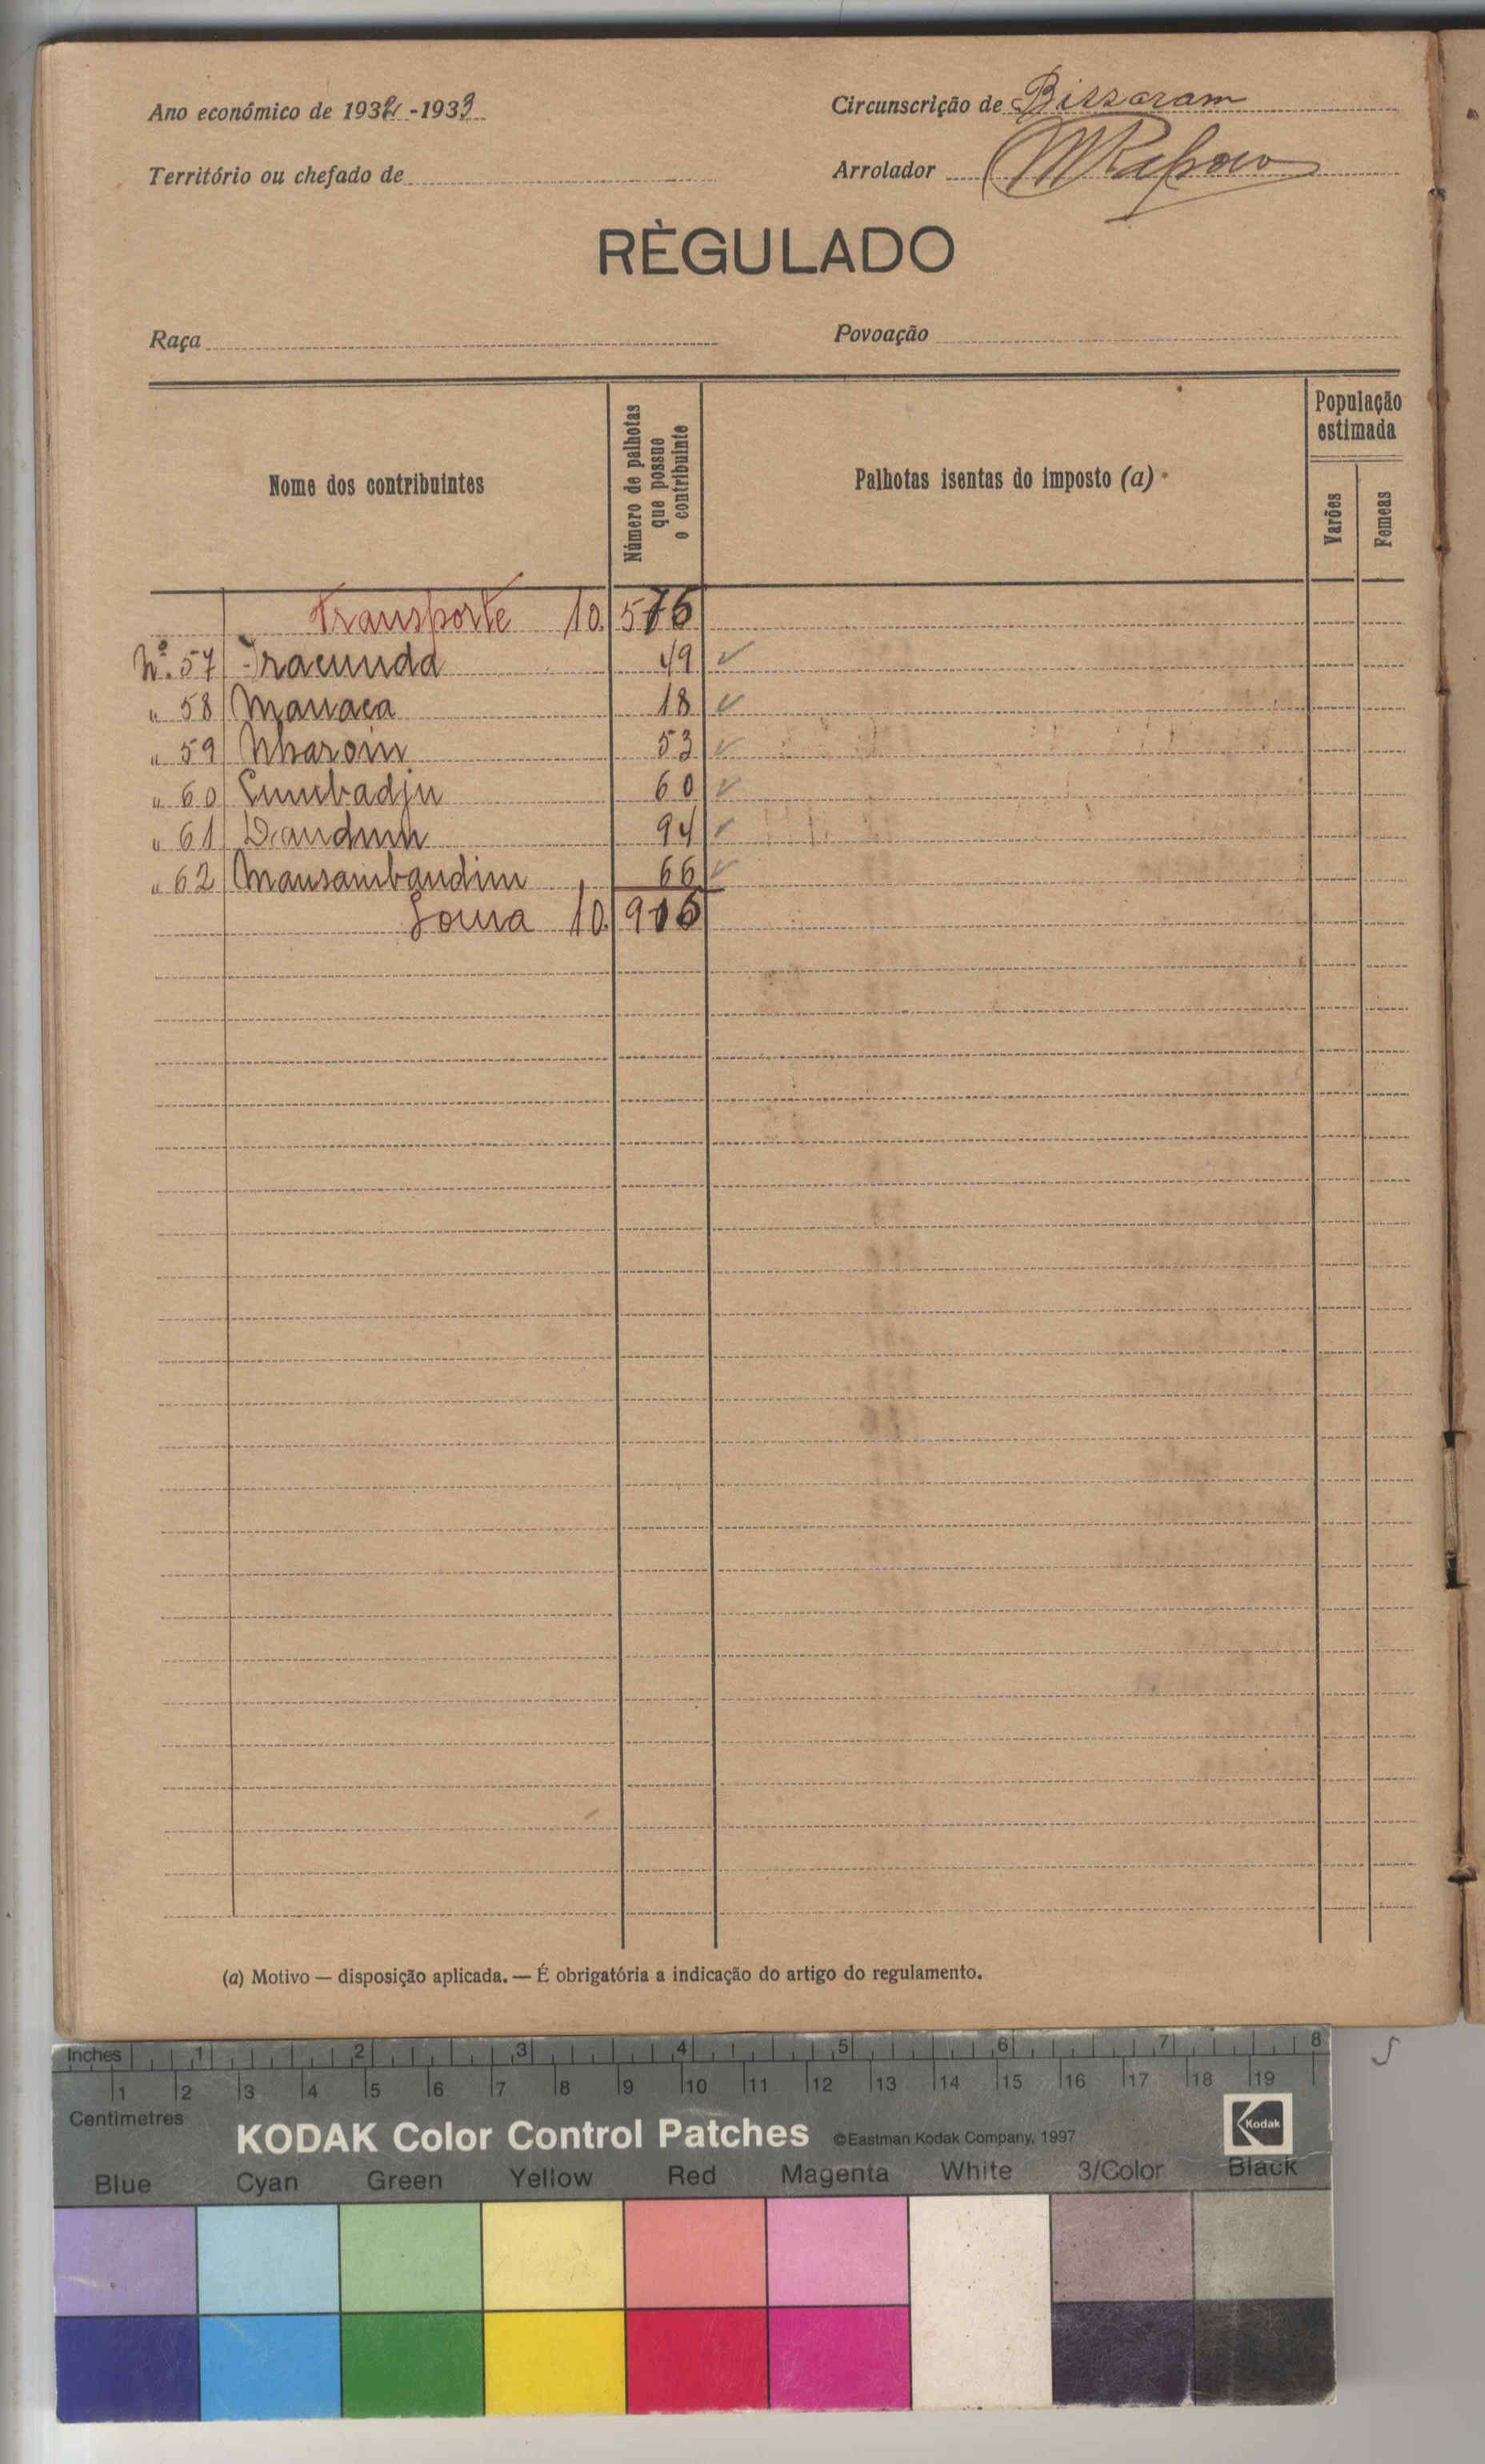 Ano económico de 1932-1933
Circunscrição de Bissoram
Território ou chefado de
Arrolador
RÈGULADO
Raça
Povoação
Nome dos contribuintes
Número de palhotas que possue o contribuinte
Palhotas isentas do imposto (a)
População estimada
Varões
Femeas
Transporte 10.576
Nº. 57 Iracunda 49
" 58 Manaca 18
" 59 Nharoin 53
" 60 Cumbadju 60
" 61 Dandum 94
" 62 Mansambandim 66
Soma 10.916
(a) Motivo — disposição aplicada. — É obrigatória a indicação do artigo do regulamento.
Inches 1 2 3 4 5 6 7 8
1 2 3 4 5 6 7 8 9 10 11 12 13 14 15 16 17 18 19
Centimetres
KODAK Color Control Patches ©Eastman Kodak Company, 1997 Kodak
Blue Cyan Green Yellow Red Magenta White 3/Color Black